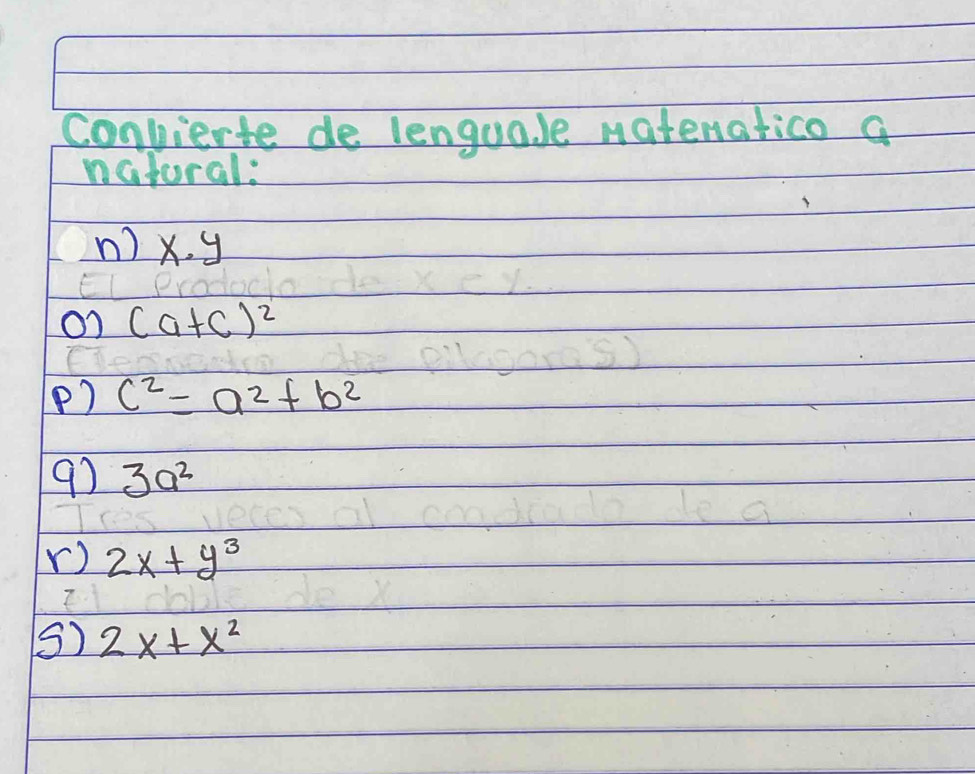 Convierte de lenguaje Matematico a
natural:
n) x.y
El Producto de x e y.
o) (a+c)²
p) c² = a² + b²
q) 3a²
Tres veces al cuadrado de a
r) 2x + y³
El doble de x
s) 2x + x²